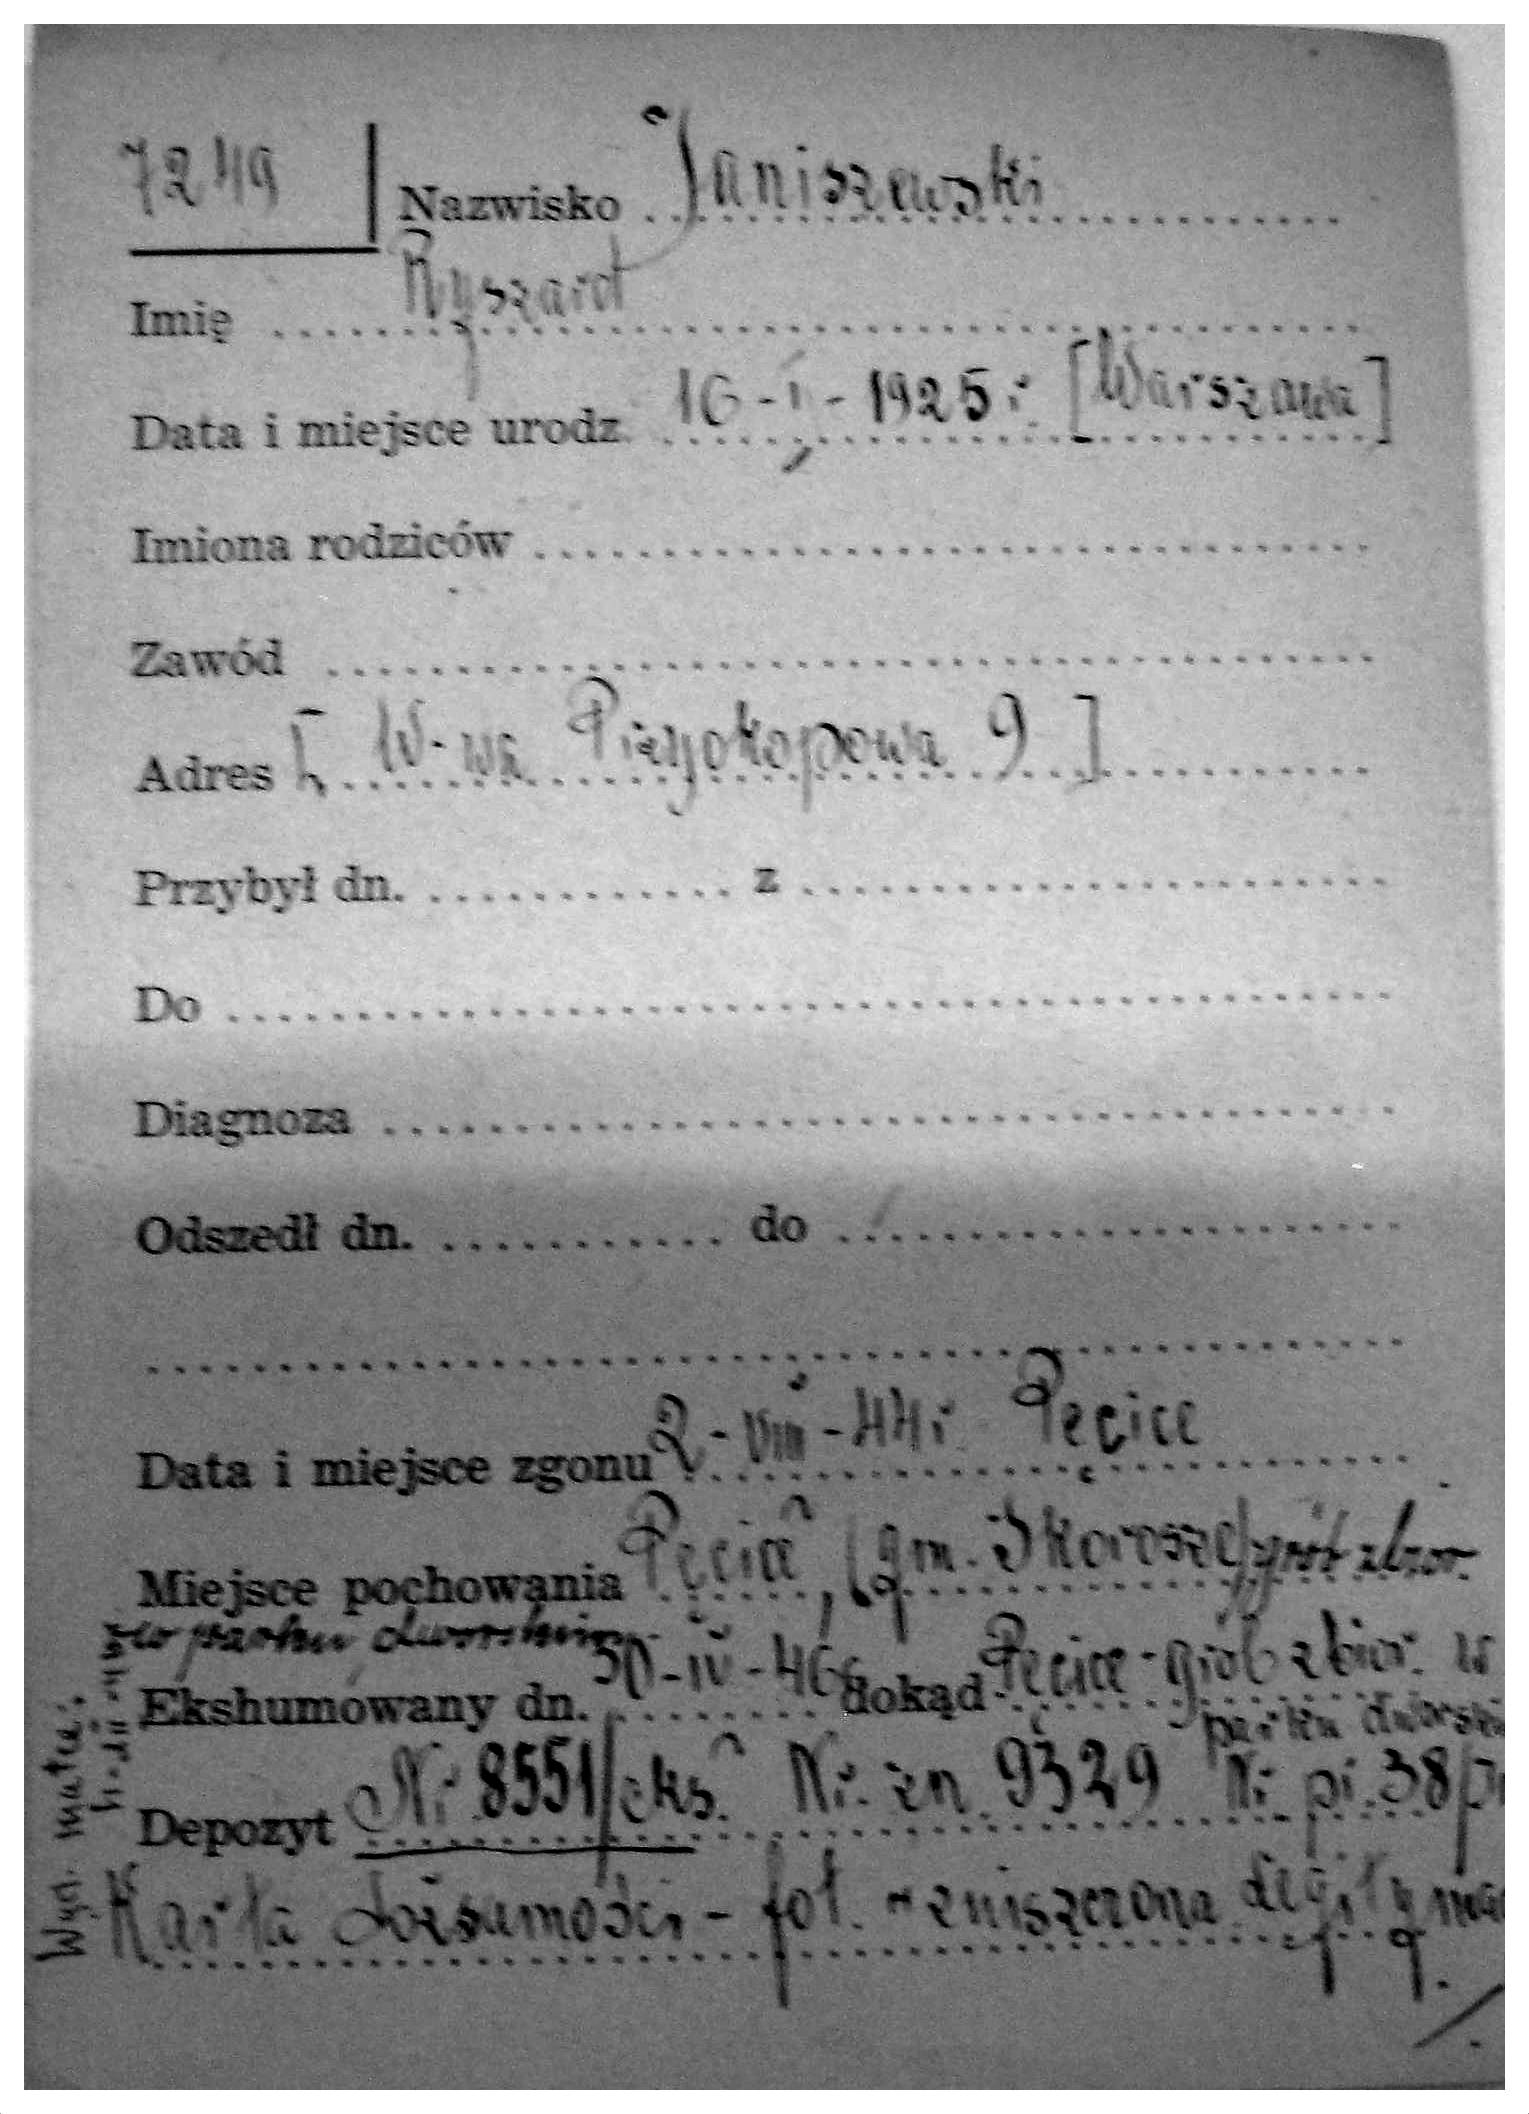 7249 Nazwisko Janiszewski
Imię Ryszard
Data i miejsce urodz. 16-I-1925 r. [Warszawa]
Imiona rodziców
Zawód
Adres [W-wa Przyokopowa 9]
Przybył dn. z
Do
Diagnoza
Odszedł dn. do
Data i miejsce zgonu 2-VIII-44 r. Pęcice
Miejsce pochowania Pęcice, (gm. Skorosze) grób zbior.
w parku dworskim
Ekshumowany dn. 30-IV-46 r. dokąd Pęcice - grób zbior. w
parku dworski
Depozyt Nr 8551/eks. Nr. zn. 9329 Nr. pr. 38/
Karta tożsamości - fot. zniszczona legitymac
Wyd. matce